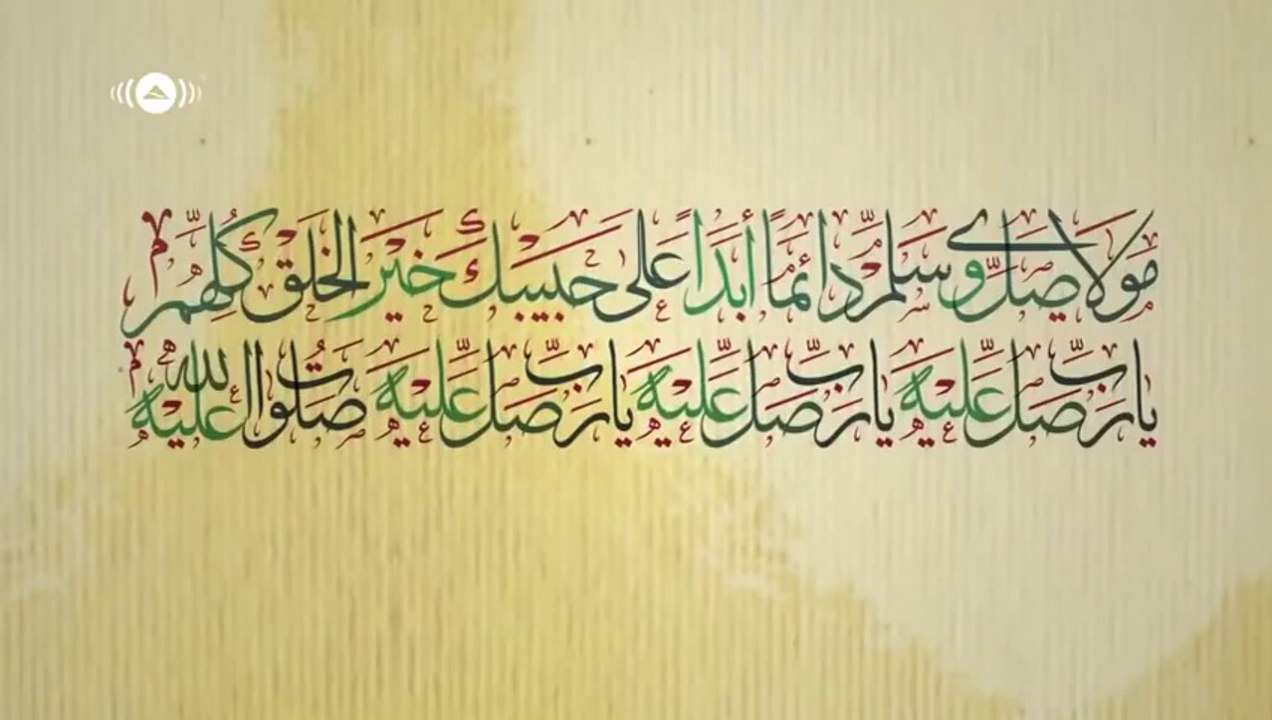 مَوْلَايَ صَلِّ وَ سَلِّمْ دَائِمًا أَبَدًا عَلَى حَبِيبِكَ خَيْرِ الخَلْقِ كُلِّهِمِ
يَا رَبِّ صَلِّ عَلَيْهِ يَا رَبِّ صَلِّ عَلَيْهِ يَا رَبِّ صَلِّ عَلَيْهِ صَلَوَاتُ اللهِ عَلَيْهِ